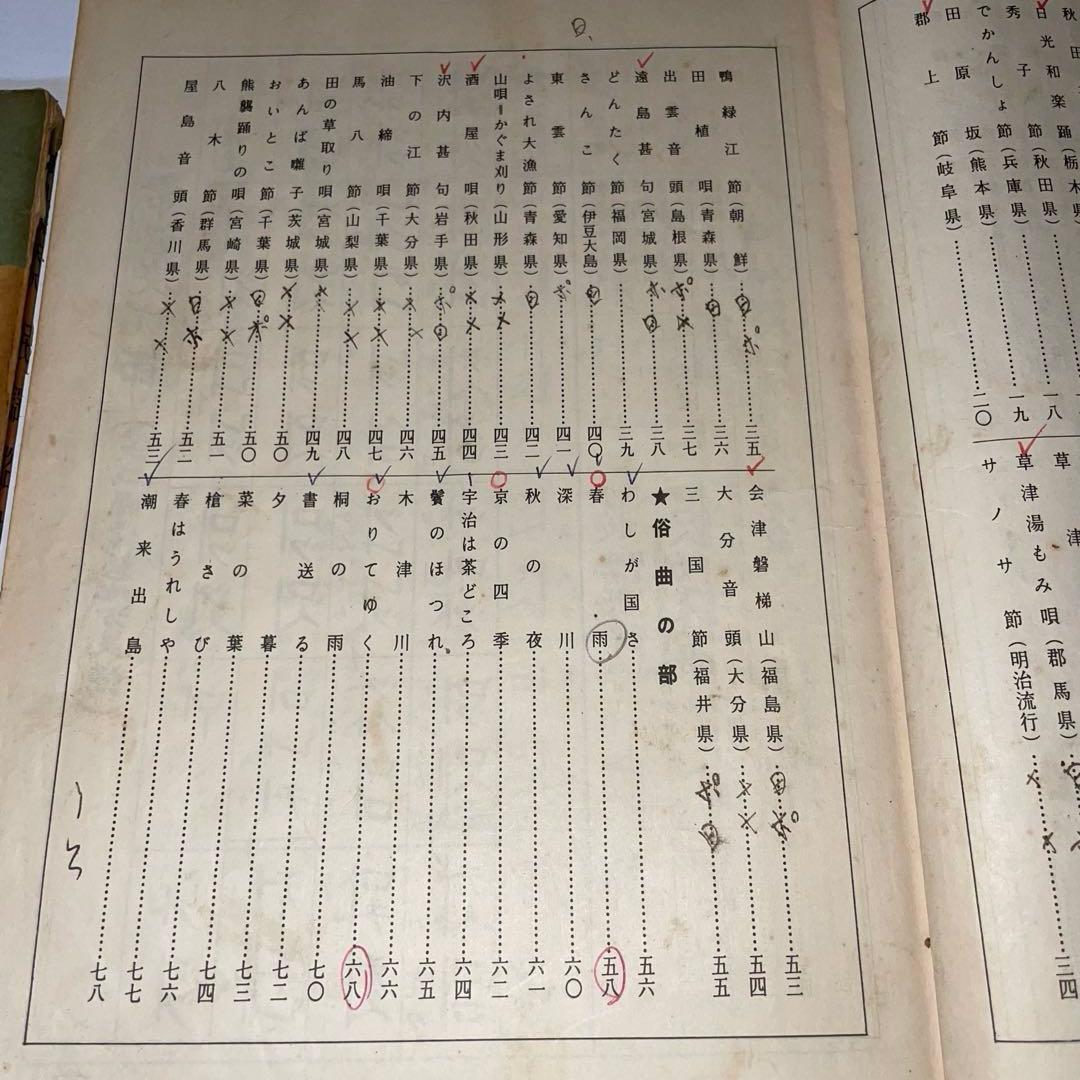 日光和楽踊(栃木県
秀子節(秋田県)
でかんしょ節(兵庫県)……一八
田原坂(熊本県)……一九
郡上節(岐阜県)……二〇
草津
草津湯もみ唄(郡馬県)
サノサ節(明治流行)……三四
鴨緑江節(朝鮮)……三五
田植唄(青森県)……三六
出雲音頭(島根県)……三七
遠島甚句(宮城県)……三八
どんたく節(福岡県)……三九
さんこ節(伊豆大島)……四〇
東雲節(愛知県)……四一
よされ大漁節(青森県)……四二
山唄=かぐま刈り(山形県)……四三
酒屋唄(秋田県)……四四
沢内甚句(岩手県)……四五
下の江節(大分県)……四六
油締唄(千葉県)……四七
馬八節(山梨県)……四八
田の草取り唄(宮城県)……四九
あんば囃子(茨城県)……五〇
おいとこ節(千葉県)……五〇
熊襲踊りの唄(宮崎県)……五一
八木節(群馬県)……五二
屋島音頭(香川県)……五三
会津磐梯山(福島県)……五三
大分音頭(大分県)……五四
三国節(福井県)……五五
★俗曲の部
わしが国さ……五六
春雨……五八
深川……六〇
秋の夜……六一
京の四季……六二
宇治は茶どころ……六四
鬢のほつれ……六五
木津川……六六
おりてゆく……六八
桐の雨……七〇
書送る……七二
夕暮……七三
菜の葉……七四
槍さび……七六
春はうれしや……七七
潮来出島……七八